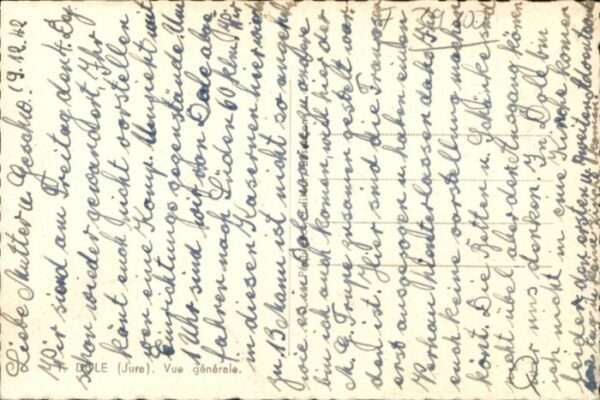 Liebe Mutter u. Geschw.! 19.12.42
Wir sind am Freitag den
schon wieder gewandert, Ihr
könt euch leicht vorstellen
wen eine Komp. Umzieht mit
Einrichtungsgegenstände. Um
1 Uhr sind wir von Dole abge
fahren nach Süden 60 klm. Wir
in dieser Kasernen hier sind
zu 13 Mann ist nicht so angeh
wie es in Dole war, zu andere
bin ich auch komen, weil hier der
M.G. Trupe zusamen gestelt wor
den ist. Hier sind die Franzosen
erst ausgezogen u. haben einen
Verhau hinterlassen daß Ihr
euch keine vorstellung machen
könt. Die Betten u. Schränke sind
nicht übel aber den Ausgang könen
wir uns denken. In Dole bin
ich nicht in eine Kirche komen
leider den ersten u. zweiten
DOLE (Jura). Vue générale.